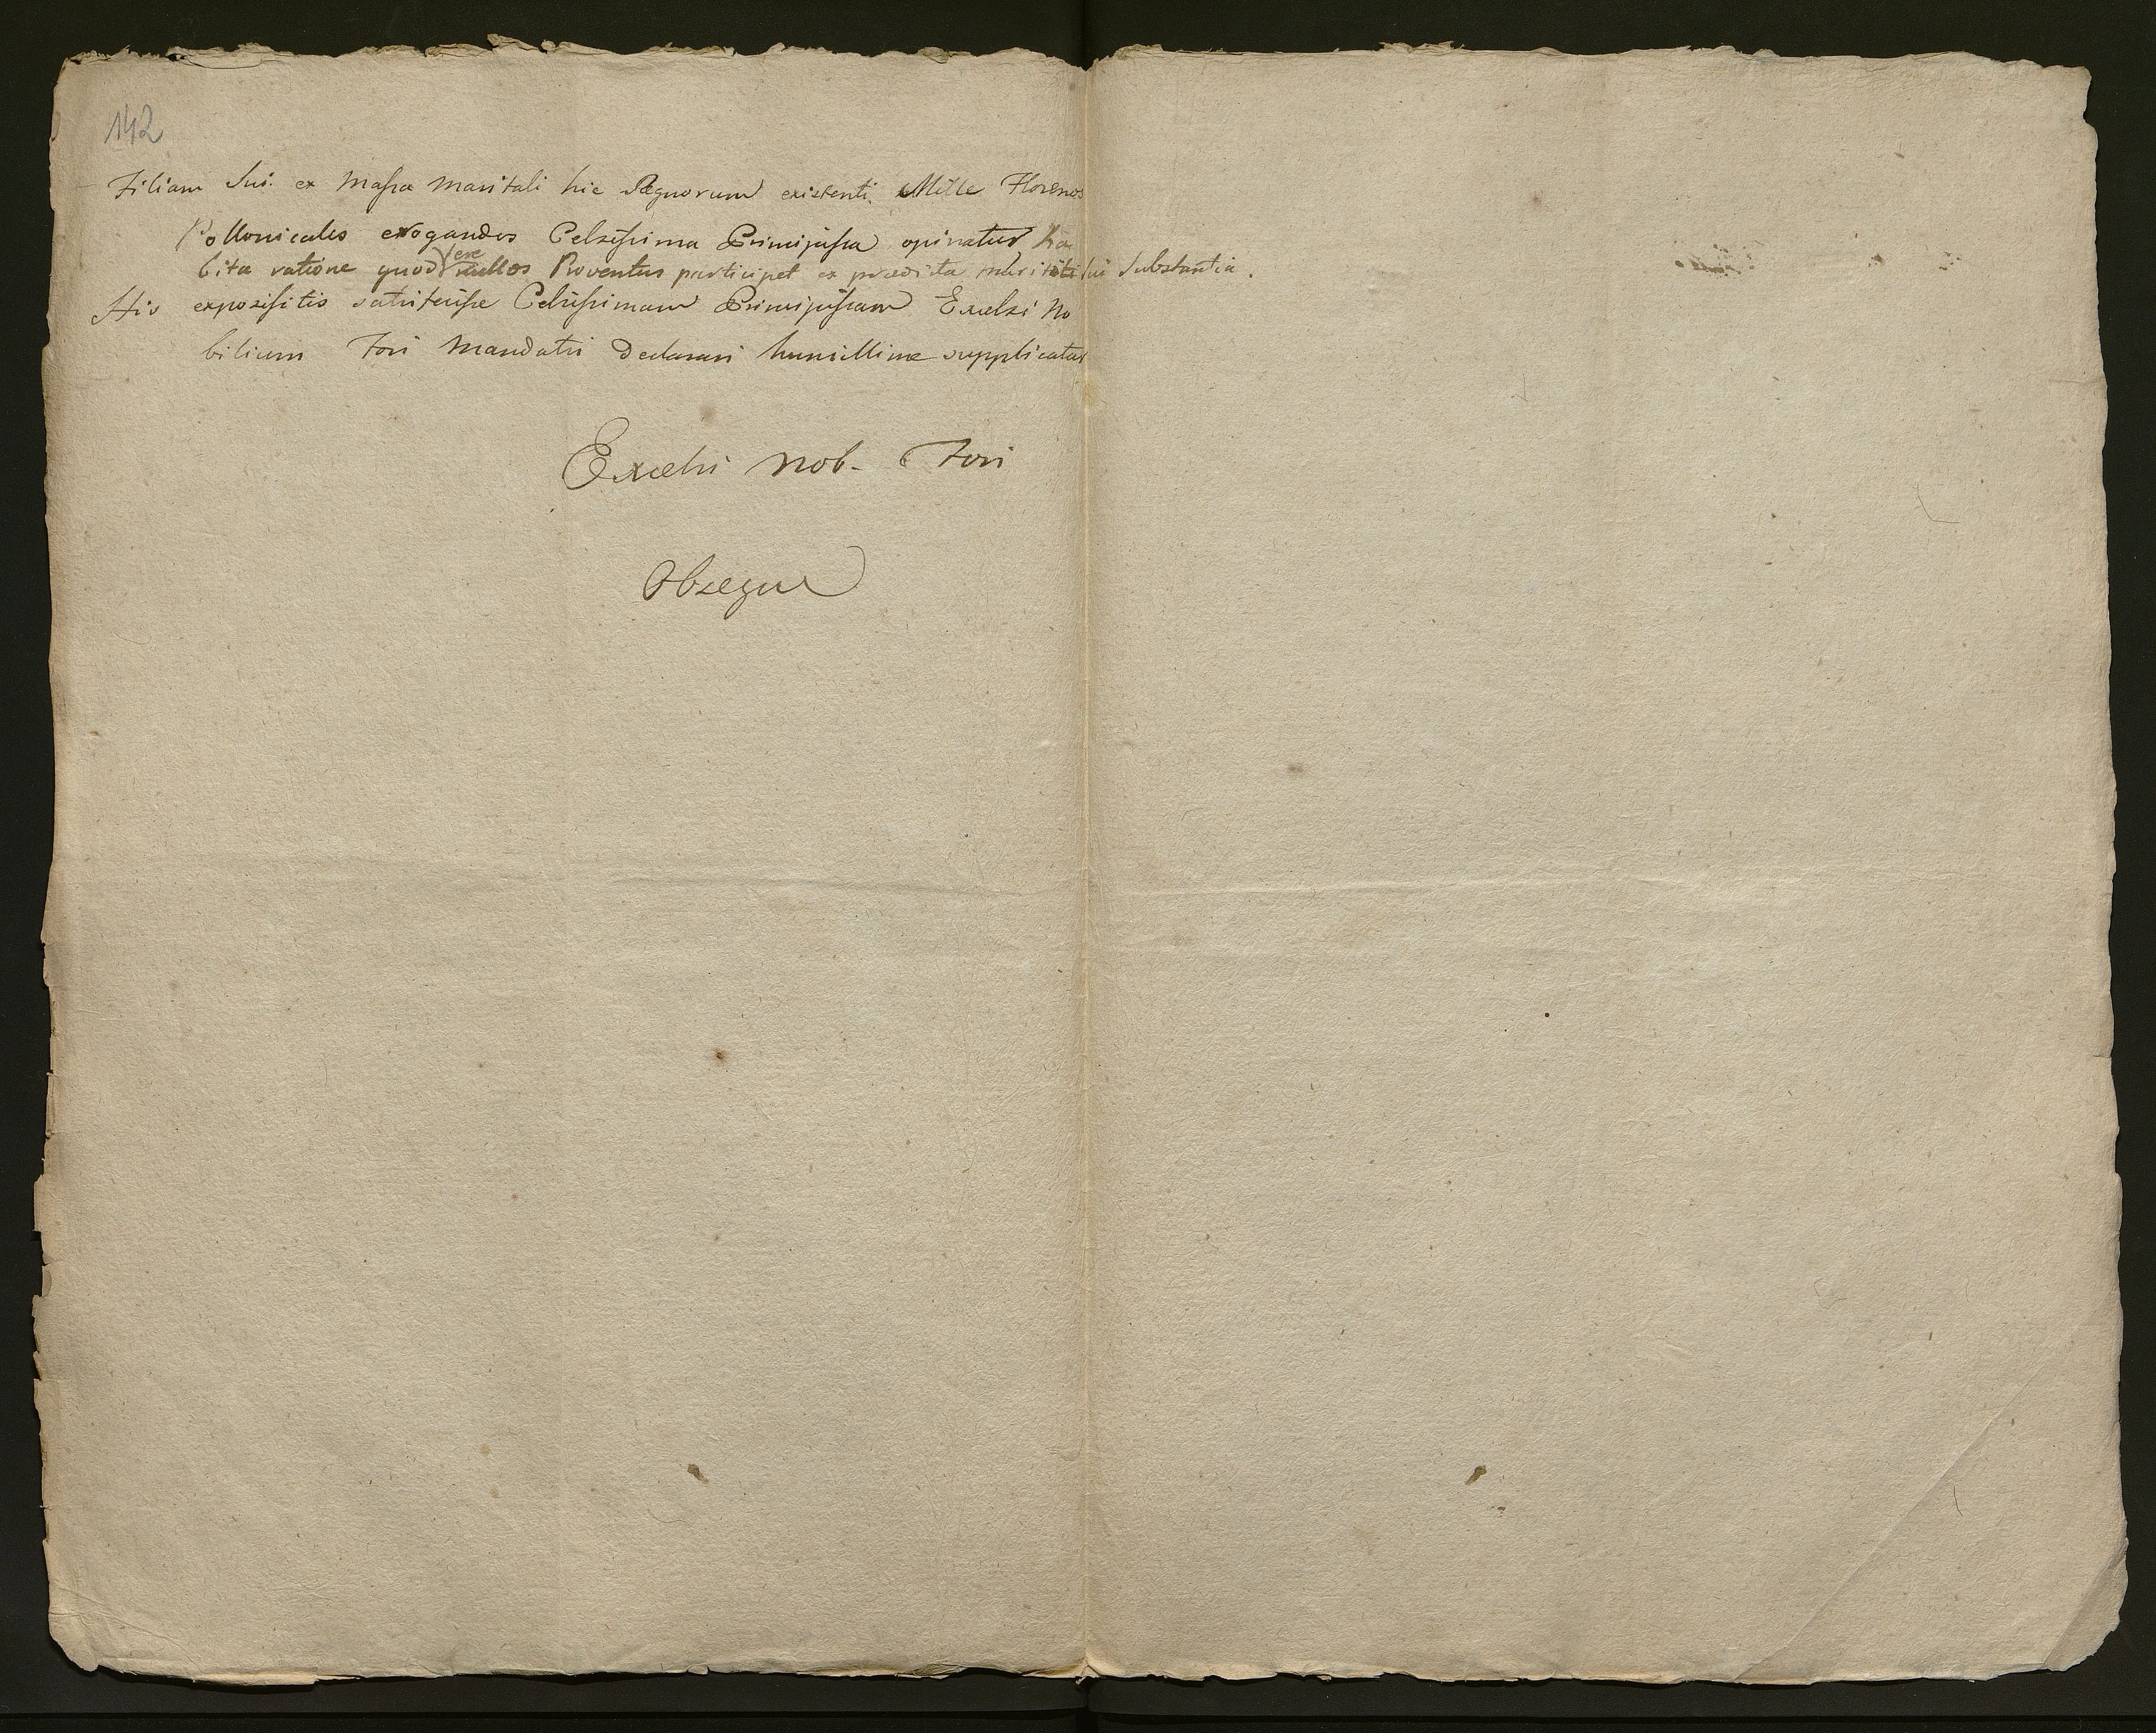 142
Filiam Sui ex Massa Maritali hic Regnorum existenti Mille Florenos
Pollonicales erogandos Celsissima Principissa opinatur ha
bita ratione quod vere nullos Proventus participet ex praedicta maritali sui Substantia.
His expossitis Celsissimam Principissam Excelsi No
bilium Fori Mandatui declarari humillime supplicatur
Excelsi Nob. Fori
Obsequ